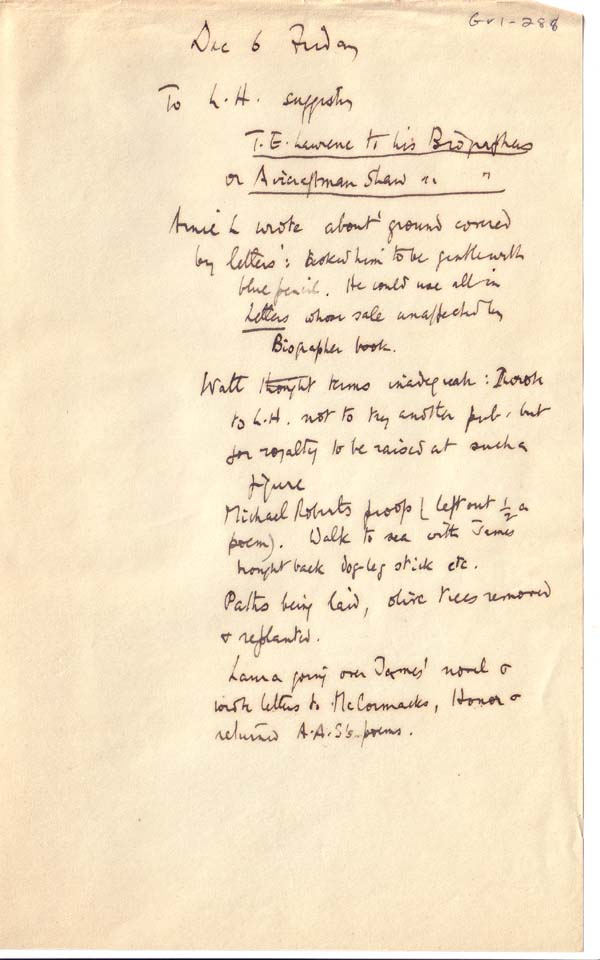 Gr1-288
Dec 6 Friday
To L.H. suggesting
T.E. Lawrence to his Biographers
or Aircraftman Shaw " "
Arnie L wrote about 'ground covered
by letters': asked him to be gentle with
blue pencil. He could use all in
Letters whose sale unaffected by
Biographer book.
Watt thought terms inadequate: I wrote
to L.H. not to try another pub. but
for royalty to be raised at such a
figure
Michael Roberts proofs (left out ½ a
poem). Walk to sea with James
brought back dog-leg stick etc.
Paths being laid, olive trees removed
& replanted.
Laura going over James' novel &
wrote letters to McCormacks, Honor &
returned A.A.S's poems.